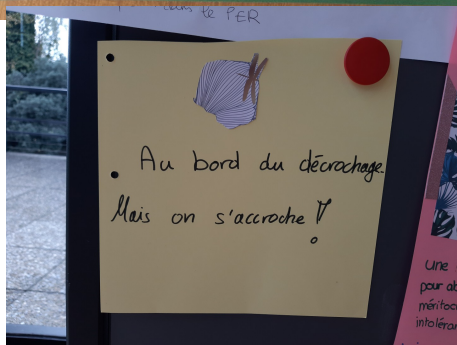 dans le PER
Au bord du décrochage.
Mais on s'accroche !
Une
pour ab
méritoc
intoléran